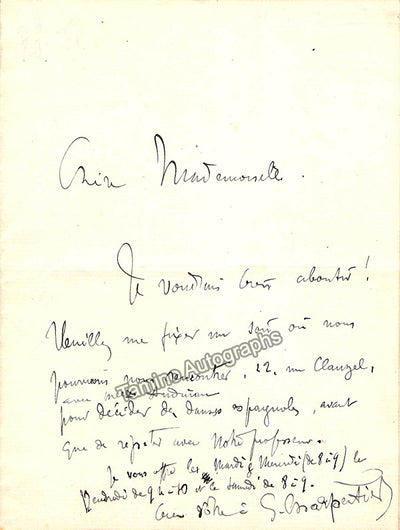 Chère Mademoiselle.
Je voudrais bien aboutir !
Veuillez me fixer un soir où nous
pourrions nous rencontrer, 22, rue Clauzel,
avec
pour décider des danses espagnoles, avant
que de répéter avec notre professeur.
Je vous offre les Mardi & Mercredi (de 8 à 9) le
Vendredi de 9 à 10 le samedi de 8 à 9.
à G. Charpentier
Tamino Autographs